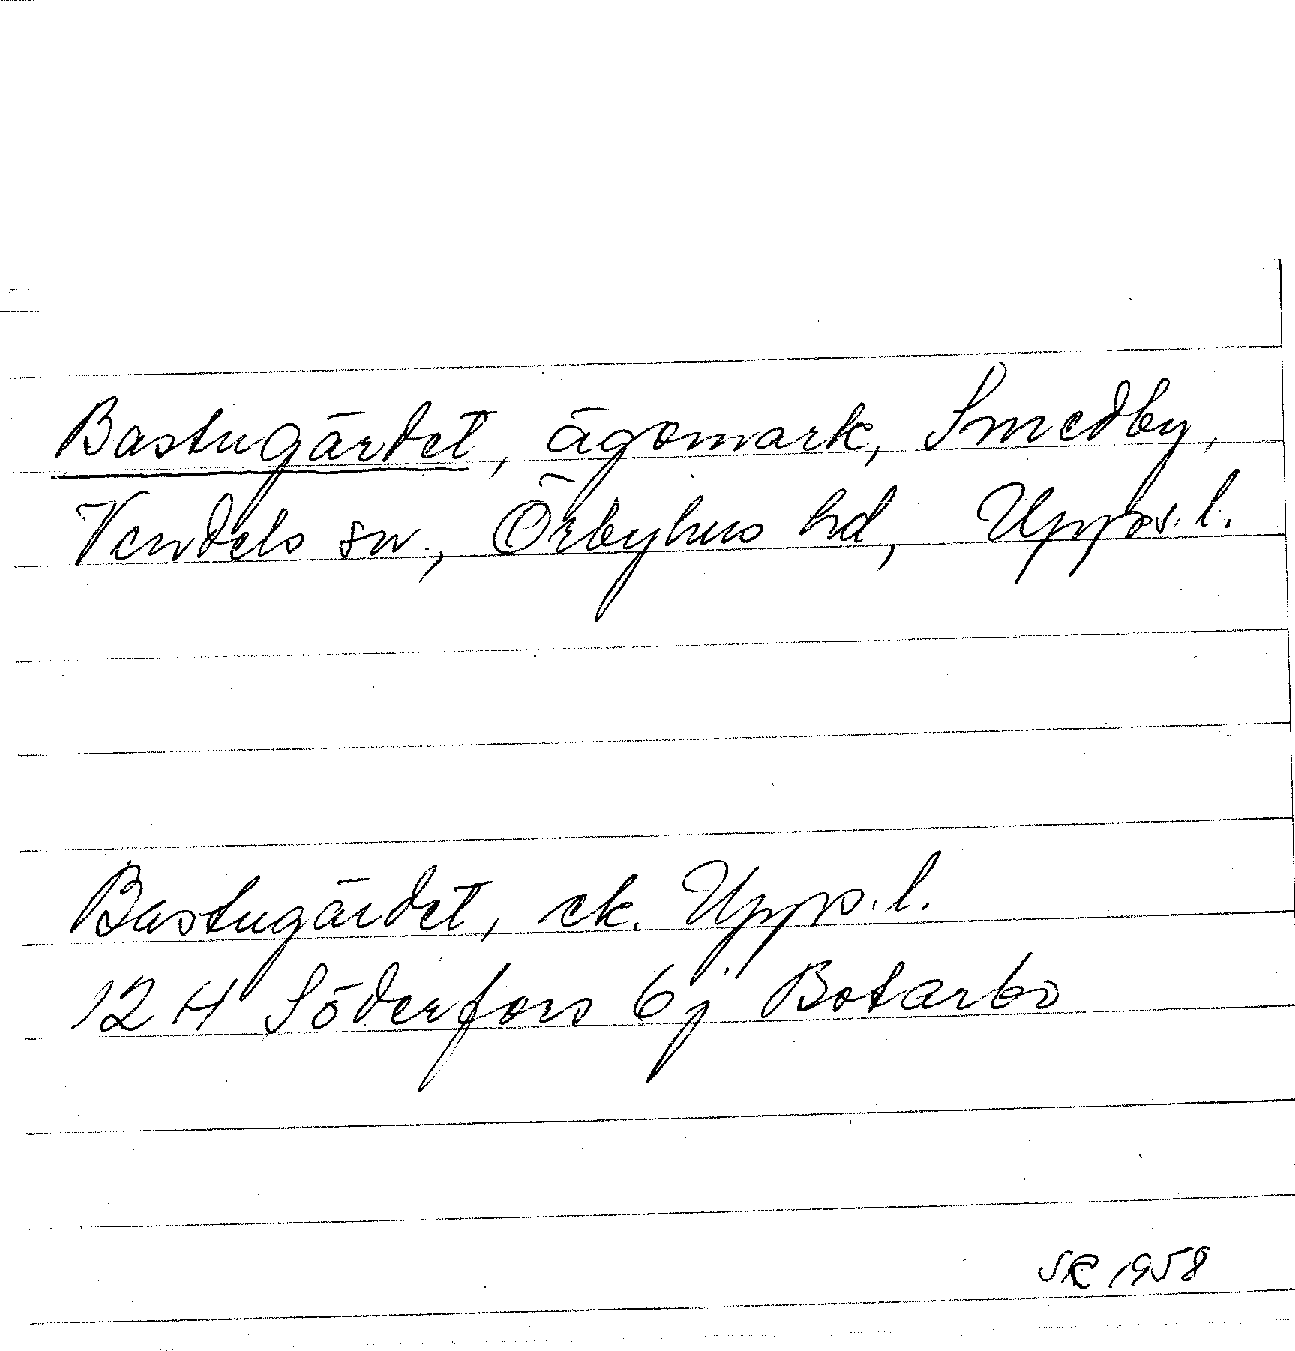 Bastugärdet, ägomark, Smedby,
Vendels sn., Örbyhus hd, Upps. l.
Bastugärdet, ek. Upps. l.
12 H Söderfors 6j Botarbo
SR 1958